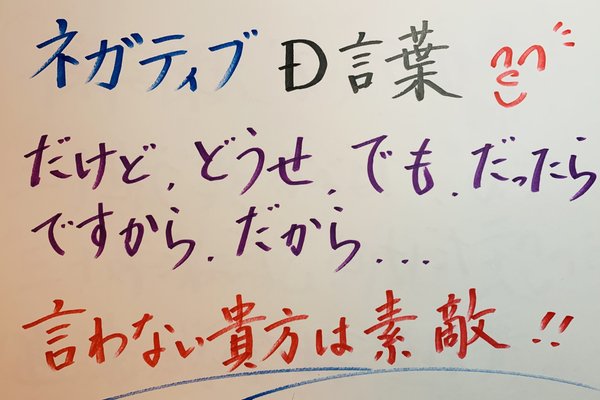 ネガティブ Ð言葉
だけど、どうせ、でも、だったら
ですから、だから...
言わない貴方は素敵!!